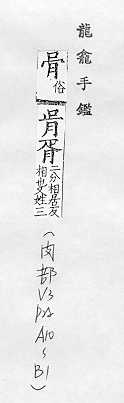 龍龕手鑑
俗
胥二今相居反
相也又姓三
(肉部V3 P2 A10~B1)